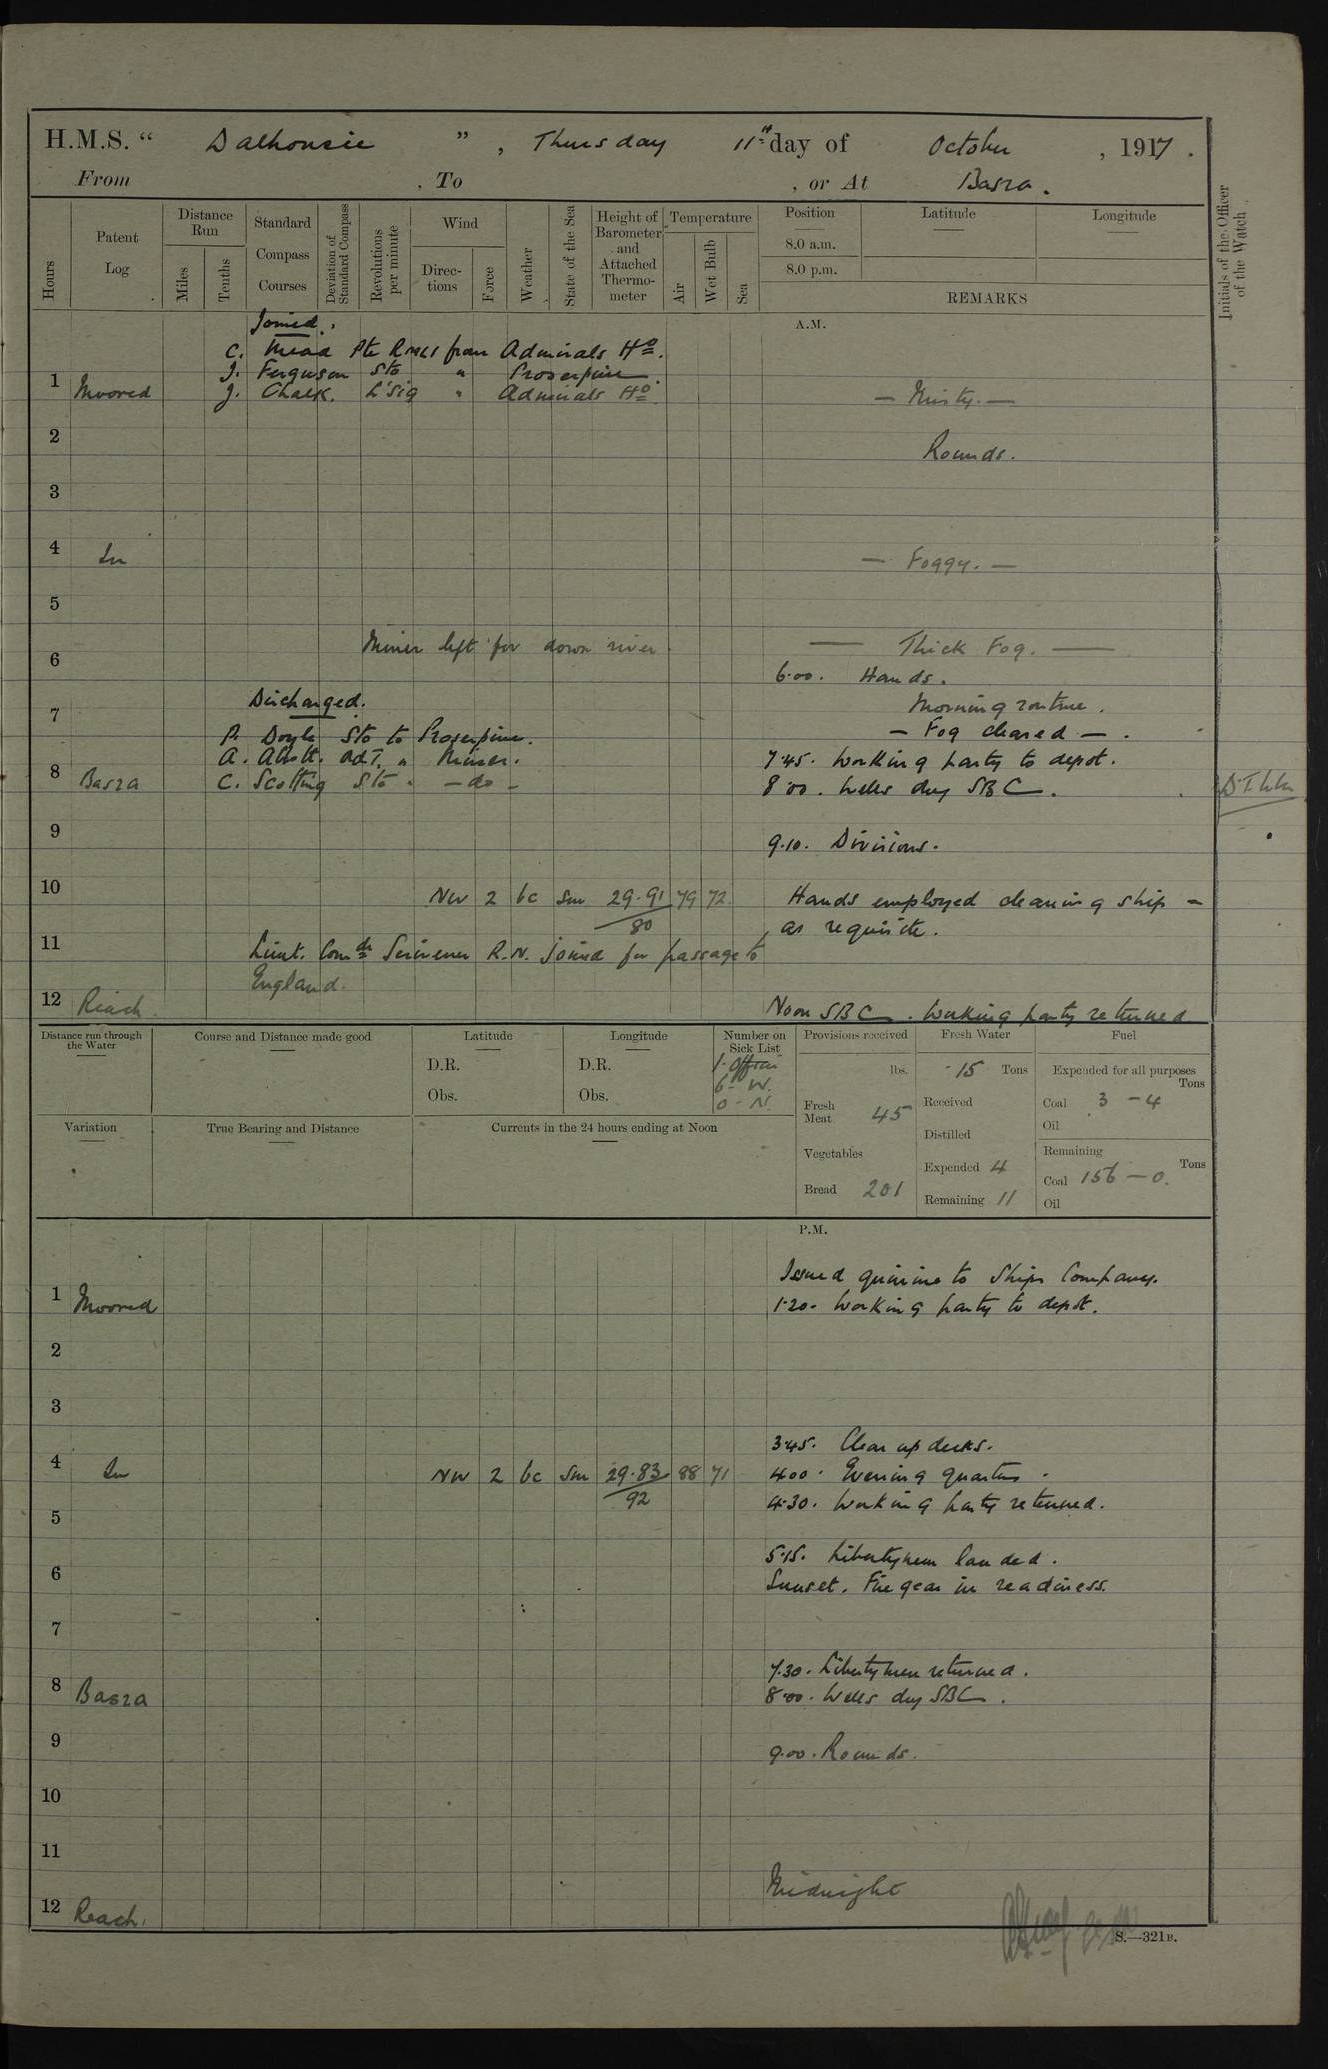 H.M.S. " Dalhousie ", Thursday 11th day of October, 1917.
From , To , or At Basra.
Hours
Patent Log
Distance Run
Miles
Tenths
Standard Compass Courses
Deviation of Standard Compass
Revolutions per minute
Wind
Directions
Force
Weather
State of the Sea
Height of Barometer and Attached Thermometer
Temperature
Air
Wet Bulb
Sea
Position
8.0 a.m.
8.0 p.m.
Latitude
Longitude
REMARKS
Initials of the Officer of the Watch.
A.M.
Joined.
C. Mead Pte RMLI from Admirals Ho.
J. Ferguson Sto " Proserpine.
1 Moored J. Chalk. L'Sig " Admirals Ho. — Misty. —
2 Rounds.
3
4 In — Foggy. —
5
6 Miner left for down river. — Thick Fog. —
6.00. Hands.
Discharged.
7 Morning routine.
P. Doyle Sto to Proserpine. — Fog cleared —.
A. Abbott. " Miner. 7.45. Working party to depot.
8 Basra C. Scotting Sto " — do — 8.00. Wells dry SBC.
9 9.10. Divisions.
10 NW 2 bc Sm 29.91 79 72 Hands employed cleaning ship –
80 as requisite.
11 Lieut. Comdr Scrivener R.N. joined for passage to
England.
12 Reach Noon SBC. Working party returned
Distance run through the Water
Course and Distance made good
Latitude
D.R.
Obs.
Longitude
D.R.
Obs.
Number on Sick List
6 - W.
0 - N.
Provisions received
lbs.
Fresh Meat 45
Vegetables
Bread 201
Fresh Water
15 Tons
Received
Distilled
Expended 4
Remaining 11
Fuel
Expended for all purposes
Tons
Coal 3 – 4
Oil
Remaining
Tons
Coal 156 – 0.
Oil
Variation
True Bearing and Distance
Currents in the 24 hours ending at Noon
P.M.
Issued quinine to Ships Company.
1 Moored 1.20. Working party to depot.
2
3
3.45. Clear up decks.
4 In NW 2 bc Sm 29.83 88 71 4.00. Evening quarters.
92 4.30. Working party returned.
5
5.15. Libertymen landed.
6 Sunset. Fire gear in readiness.
7
7.30. Libertymen returned.
8 Basra 8.00. Wells dry SBC.
9 9.00. Rounds.
10
11
Midnight
12 Reach.
S.—321B.